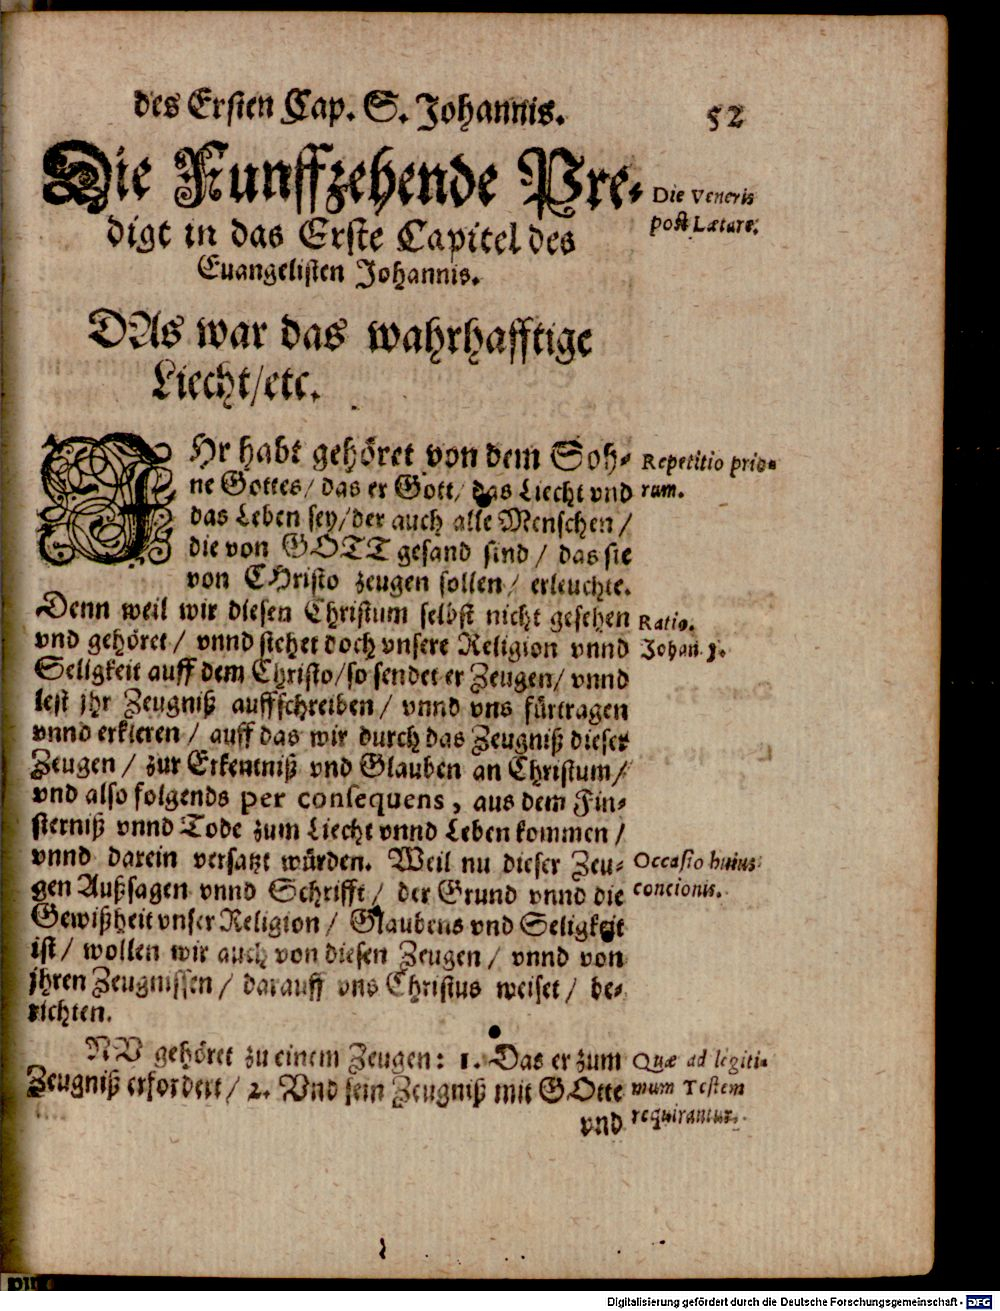 des Ersten Cap. S. Johannis. 52
Die Funffzehende Pre-
digt in das Erste Capitel des
Euangelisten Johannis.
Die Veneris
post Lætare.
DAs war das wahrhafftige
Liecht/etc.
IHr habt gehöret von dem Soh-
ne Gottes/ das er Gott/ das Liecht vnd
das Leben sey/der auch alle Menschen /
die von GOTT gesand sind / das sie
von CHristo zeugen sollen / erleuchte.
Repetitio prio-
rum.
Denn weil wir diesen Christum selbst nicht gesehen
vnd gehöret / vnnd stehet doch vnsere Religion vnnd
Seligkeit auff dem Christo/so sendet er Zeugen/ vnnd
lest jhr Zeugniß auffschreiben / vnnd vns fürtragen
vnnd erkleren / auff das wir durch das Zeugniß dieser
Zeugen / zur Erkentniß vnd Glauben an Christum/
vnd also folgends per consequens, aus dem Fin-
sterniß vnnd Tode zum Liecht vnnd Leben kommen /
vnnd darein versatzt würden. Weil nu dieser Zeu-
gen Außsagen vnnd Schrifft / der Grund vnnd die
Gewißheit vnser Religion / Glaubens vnd Seligkeit
ist / wollen wir auch von diesen Zeugen / vnnd von
jhren Zeugnissen / darauff vns Christus weiset / be-
richten.
Ratio.
Johan. 1.
Occasio huius
concionis.
NV gehöret zu einem Zeugen: 1. Das er zum
Zeugniß erfordert / 2. Vnd sein Zeugniß mit GOtte
vnd
Quæ ad legiti-
mum Testem
requirantur.
Digitalisierung gefördert durch die Deutsche Forschungsgemeinschaft - DFG